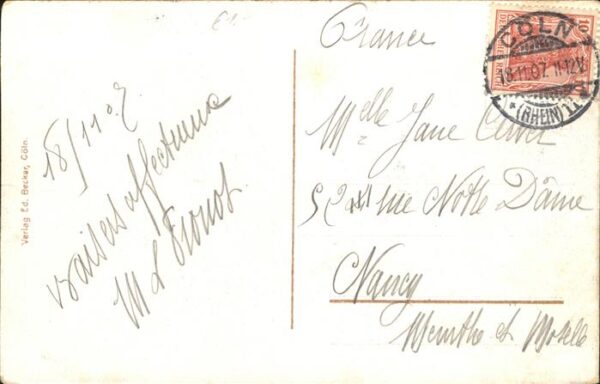 France
10
DEUTSCHES REICH
CÖLN
18.11.07. 11-12V.
* (RHEIN) 1
Mlle Jane
52 rue Notre Dâme
Nancy
Meurthe et Moselle
18/11 07
Baisers affectueux
M L
Verlag Ed. Becker, Cöln.